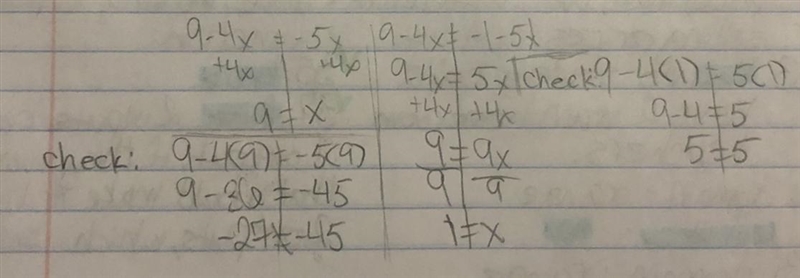 9-4x = -5x
+4x +4x
9 = x
check: 9-4(9) = -5(9)
9-36 = -45
-27 ≠ -45
9-4x = -|-5x|
9-4x = 5x
+4x +4x
9 = 9x
9 9
1 = x
check: 9-4(1) = 5(1)
9-4 = 5
5 = 5